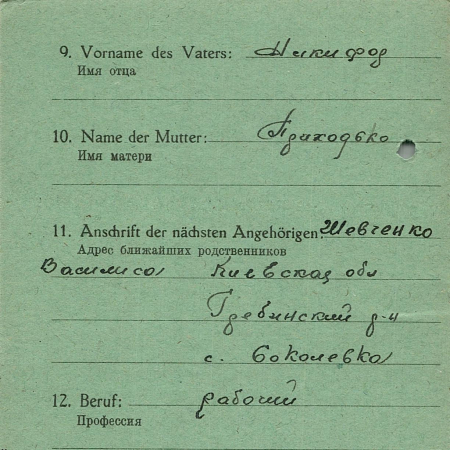 9. Vorname des Vaters: Никифор
Имя отца
10. Name der Mutter: Приходько
Имя матери
11. Anschrift der nächsten Angehörigen: Шевченко
Адрес ближайших родственников
Василиса Киевская обл
Гребінский р-н
с. Соколевка
12. Beruf: рабочий
Профессия